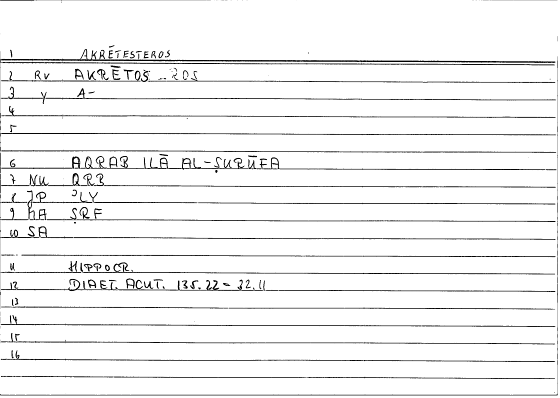 1 AKRĒTESTEROS
2 RV AKRĒTOS ..ROS
3 Y A-
4
5
6 AQRAB ILĀ AL-ṢURŪFA
7 NU QRB
8 JP ʾLY
9 hA ṢRF
10 SA
11 HIPPOCR.
12 DIAET. ACUT. 135.22 = 32.11
13
14
15
16